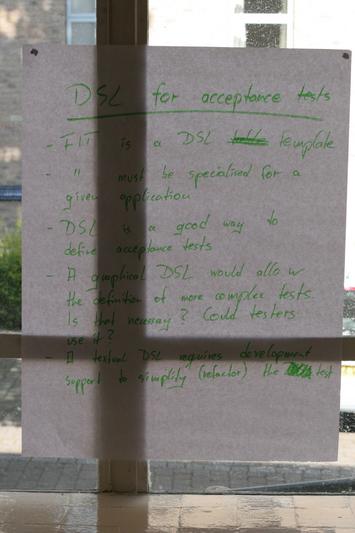 DSL for acceptance tests
- FIT is a DSL Template
- " must be specialised for a
given application
- DSL is a good way to
define acceptance tests
- A graphical DSL would allow
the definition of more complex tests.
Is that necessary? Could testers
use it?
- A textual DSL requires development
support to simplify (refactor) the test